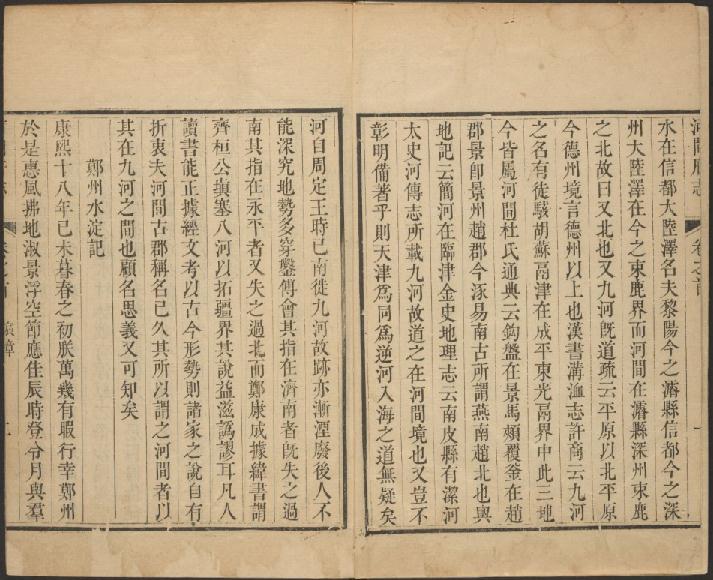 河間府志
卷之首
水在信都大陸澤名夫黎陽今之濬縣信都今之深
州大陸澤在今之束鹿界而河間在濬縣深州束鹿
之北故曰又北也又九河旣道疏云平原以北平原
今德州境言德州以上也漢書溝洫志許商云九河
之名有徒駭胡蘇鬲津在成平東光鬲界中此三地
今皆屬河間杜氏通典云鉤盤在景馬頰覆釜在趙
郡景卽景州趙郡今涿易南古所謂燕南趙北也輿
地記云簡河在臨津金史地理志云南皮縣有潔河
太史河傳志所載九河故道之在河間境也又豈不
彰明備著乎則天津爲同爲逆河入海之道無疑矣
河自周定王時已南徙九河故跡亦漸湮廢後人不
能深究地勢多穿鑿傅會其指在濟南者旣失之過
南其指在永平者又失之過北而鄭康成據緯書謂
齊桓公填塞八河以拓疆界其說益滋譌謬耳凡人
讀書能正據經文考以古今形勢則諸家之說自有
折衷夫河間古郡稱名已久其所以謂之河間者以
其在九河之間也顧名思義又可知矣
鄭州水淀記
康熙十八年己未暮春之初朕萬幾有暇行幸鄭州
於是惠風拂地淑景浮空節應佳辰時登令月與羣
宸章
二